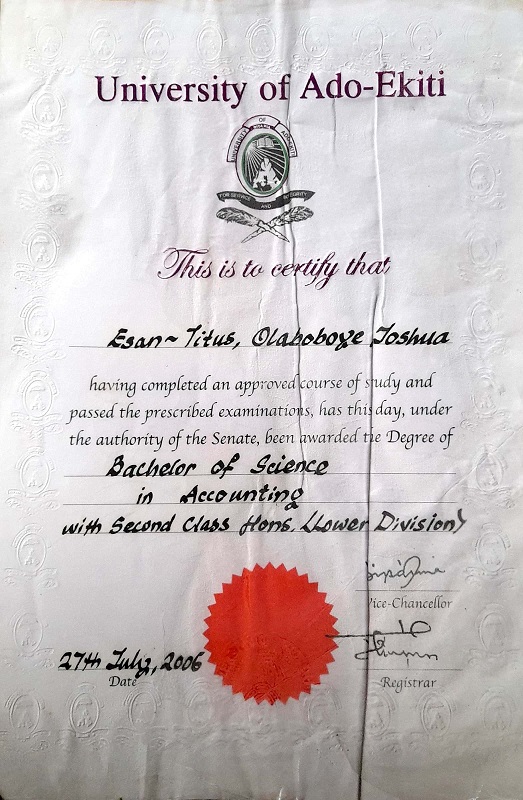 University of Ado-Ekiti
UNIVERSITY OF ADO-EKITI
FOR SERVICE AND INTEGRITY
This is to certify that
Esan~Titus, Olaboboye Joshua
having completed an approved course of study and
passed the prescribed examinations, has this day, under
the authority of the Senate, been awarded the Degree of
Bachelor of Science
in Accounting
with Second Class Hons. (Lower Division)
Vice-Chancellor
27th July, 2006
Date
Registrar